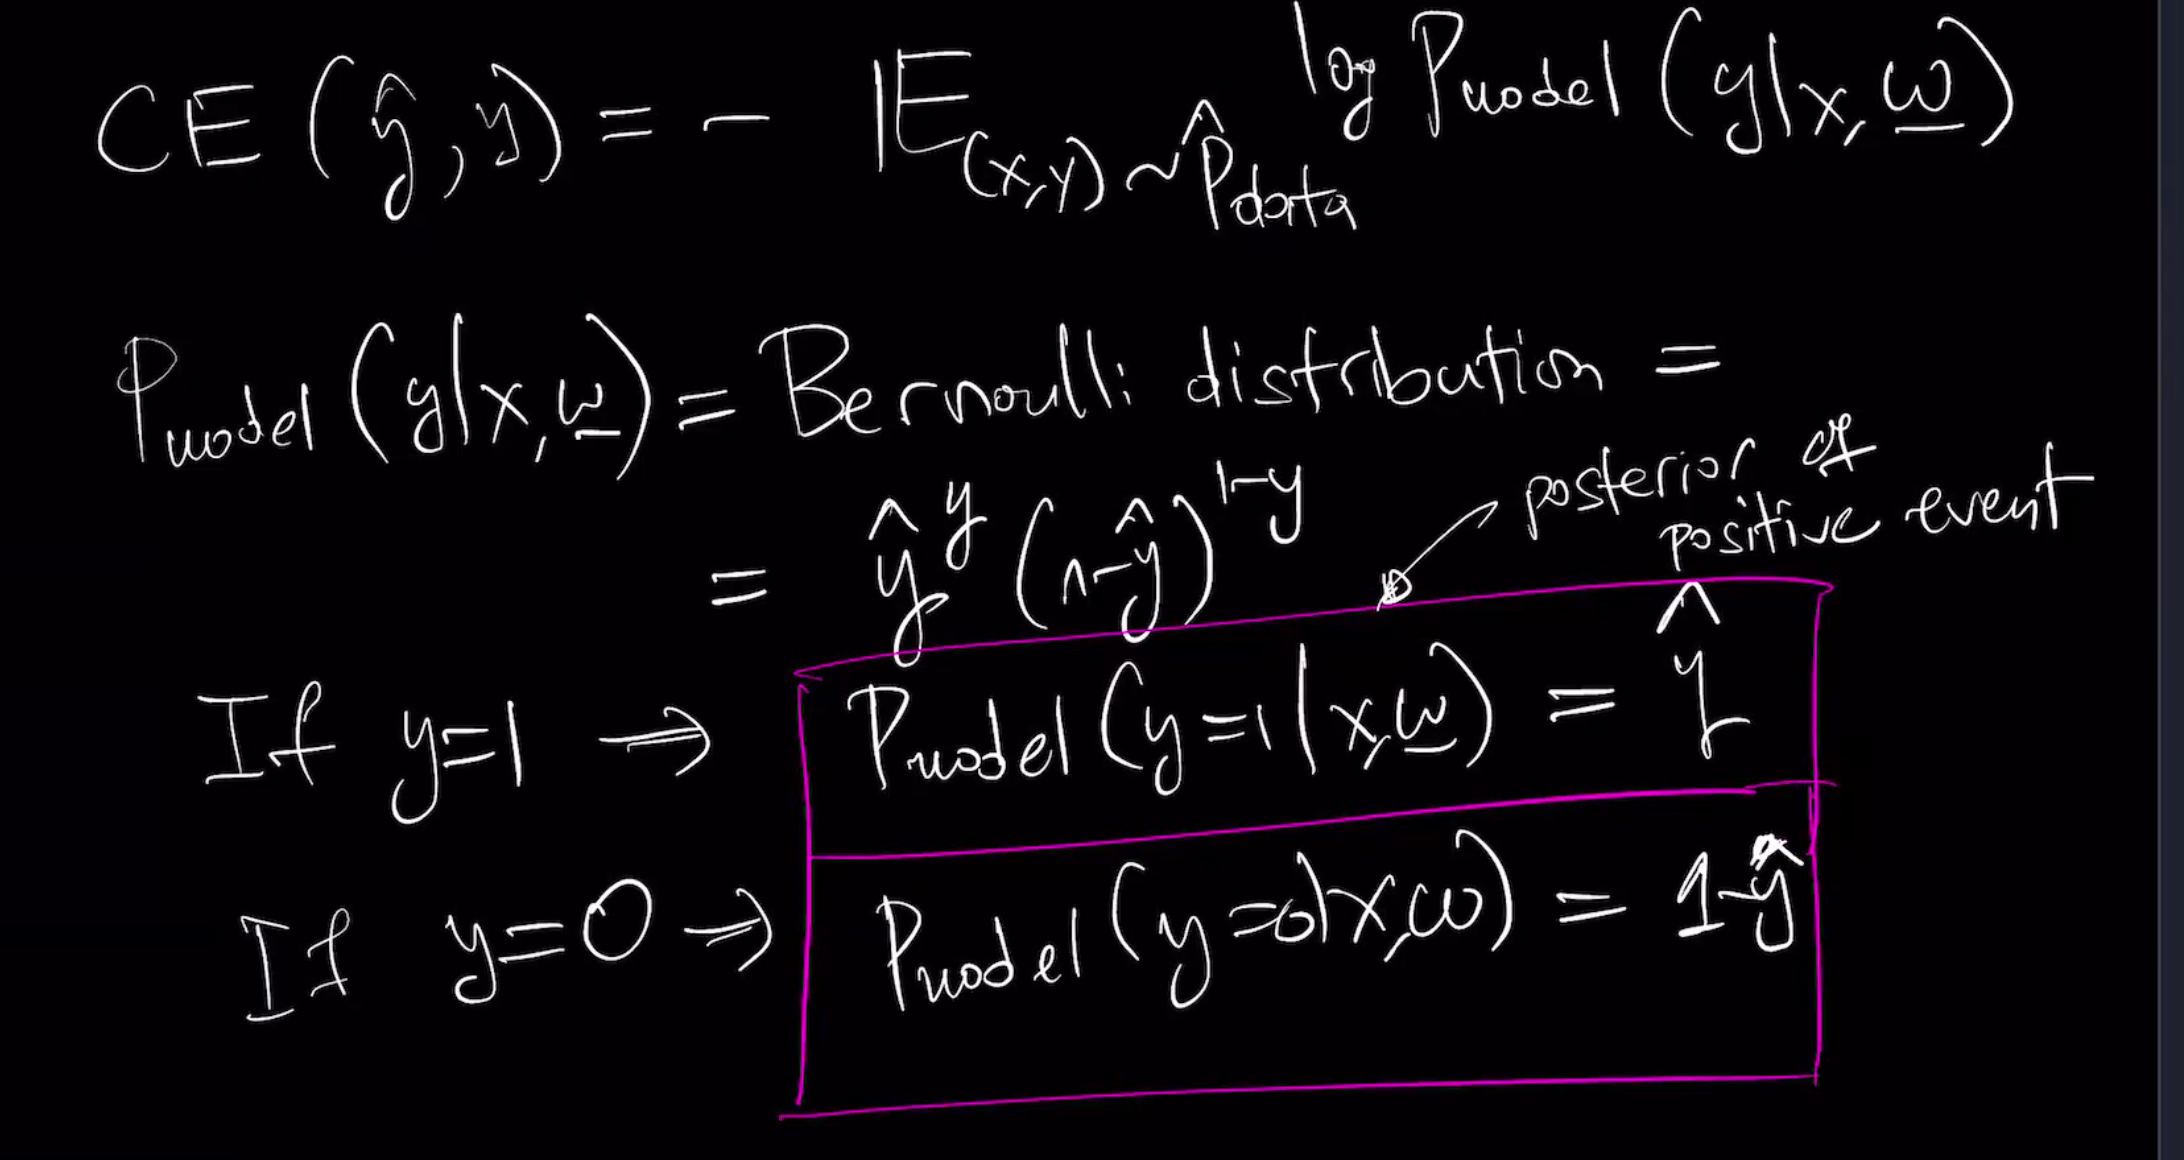 CE(ŷ, y) = - 𝔼_{(x,y) ~ p̂_data} log P_model(y|x, w̲)
P_model(y|x, w̲) = Bernoulli distribution =
= ŷ^y (1-ŷ)^{1-y}
posterior of
positive event
If y=1 → P_model(y=1|x, w̲) = ŷ
If y=0 → P_model(y=0|x, w) = 1-ŷ